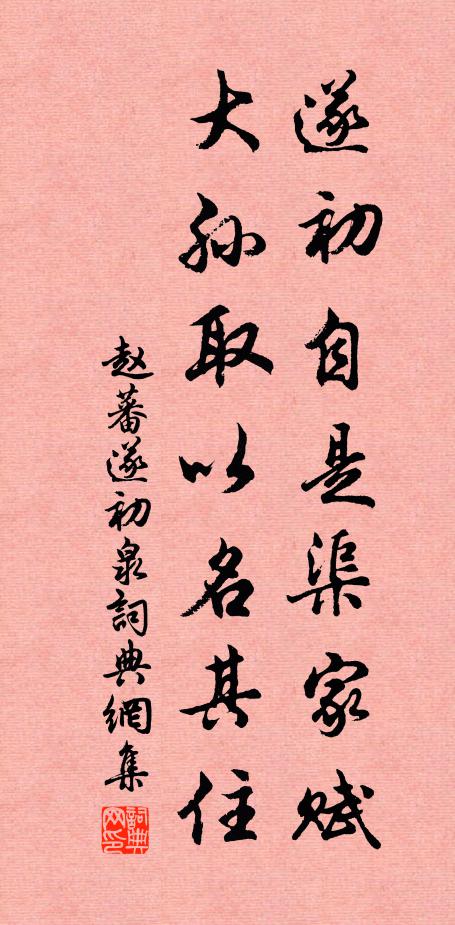 遂初自是渠家赋
大孙取以名其住
赵蕃遂初泉詞典網集
詞典网印